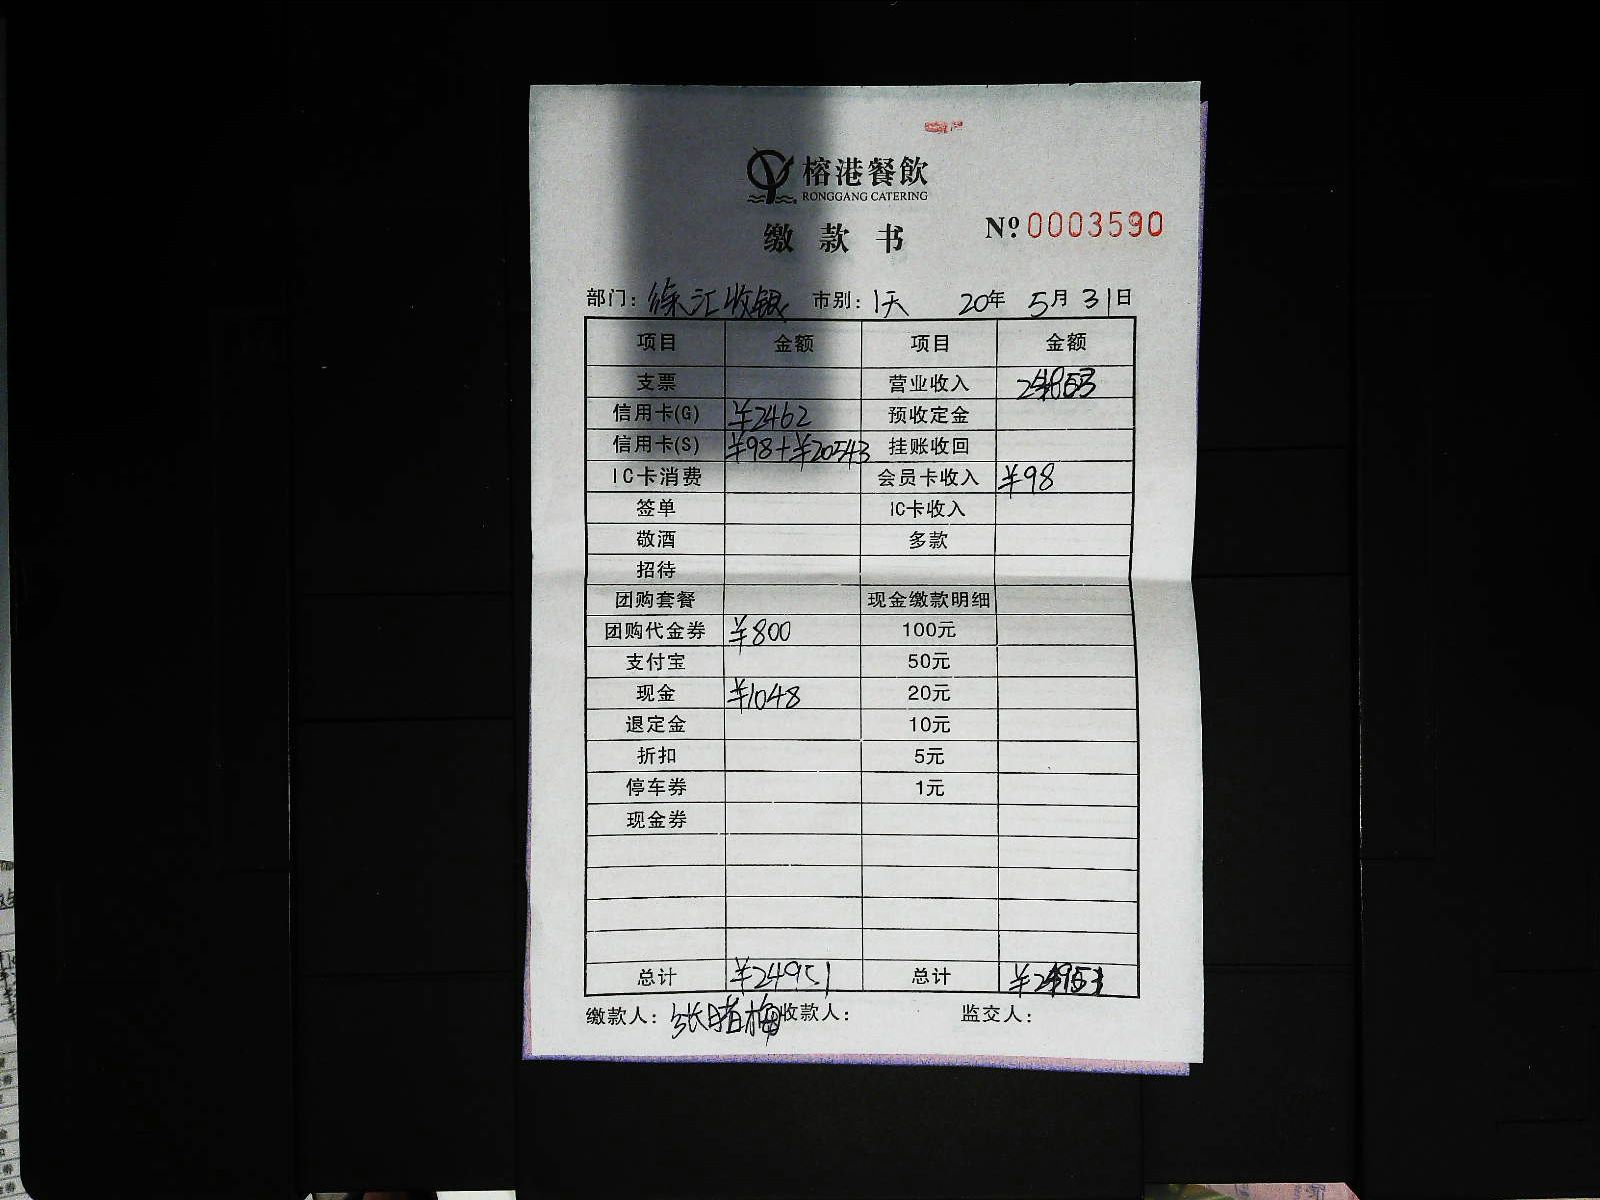 榕港餐飲
RONGGANG CATERING
缴款书 Nº 0003590
部门: 徐汇收银 市别: 1天 20年 5月 31日
项目 金额 项目 金额
支票 营业收入
信用卡(G) ¥2462 预收定金
信用卡(S) ¥98+¥20543 挂账收回
IC卡消费 会员卡收入 ¥98
签单 IC卡收入
敬酒 多款
招待
团购套餐 现金缴款明细
团购代金券 ¥800 100元
支付宝 50元
现金 ¥1048 20元
退定金 10元
折扣 5元
停车券 1元
现金券
总计 ¥24951 总计
缴款人: 张 梅 收款人: 监交人: